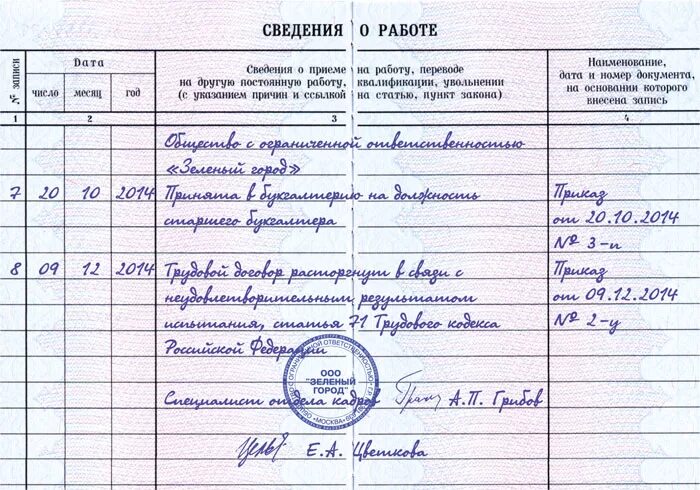 СВЕДЕНИЯ О РАБОТЕ
№ записи
Дата
число месяц год
Сведения о приеме на работу, переводе
на другую постоянную работу, квалификации, увольнении
(с указанием причин и ссылкой на статью, пункт закона)
Наименование,
дата и номер документа,
на основании которого
внесена запись
1 2 3 4
Общество с ограниченной ответственностью
«Зеленый город»
7 20 10 2014 Принята в бухгалтерию на должность Приказ
старшего бухгалтера от 20.10.2014
№ 3-п
8 09 12 2014 Трудовой договор расторгнут в связи с Приказ
неудовлетворительным результатом от 09.12.2014
испытания, статья 71 Трудового кодекса № 2-у
Российской Федерации
ООО
"ЗЕЛЕНЫЙ
ГОРОД"
Специалист отдела кадров А.П. Грибов
Е.А. Цветкова